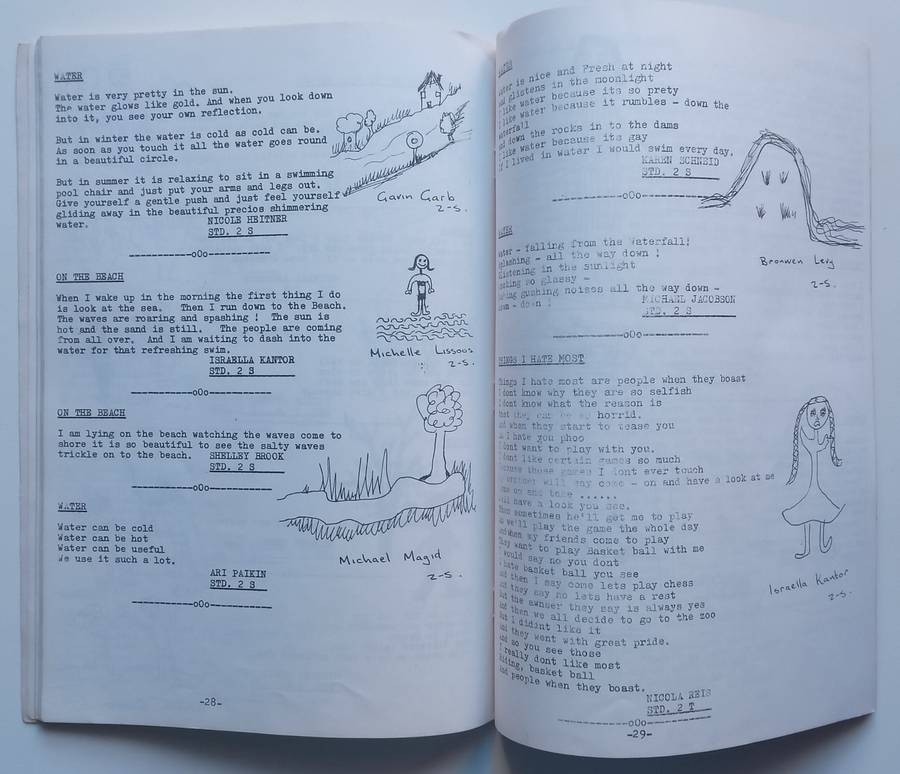 WATER
Water is very pretty in the sun.
The water glows like gold. And when you look down
into it, you see your own reflection.
But in winter the water is cold as cold can be.
As soon as you touch it all the water goes round
in a beautiful circle.
But in summer it is relaxing to sit in a swimming
pool chair and just put your arms and legs out.
Give yourself a gentle push and just feel yourself
gliding away in the beautiful precios shimmering
water.
NICOLE HEITNER
STD. 2 S
-----------o0o-----------
Gavin Garb
2-S.
ON THE BEACH
When I wake up in the morning the first thing I do
is look at the sea. Then I run down to the Beach.
The waves are roaring and spashing ! The sun is
hot and the sand is still. The people are coming
from all over. And I am waiting to dash into the
water for that refreshing swim.
ISRAELLA KANTOR
STD. 2 S
-----------o0o-----------
Michelle Lissoos
2-S.
ON THE BEACH
I am lying on the beach watching the waves come to
shore it is so beautiful to see the salty waves
trickle on to the beach. SHELLEY BROOK
STD. 2 S
-----------o0o-----------
WATER
Water can be cold
Water can be hot
Water can be useful
We use it such a lot.
ARI PAIKIN
STD. 2 S
-----------o0o-----------
Michael Magid
2-S.
-28-
WATER
Water is nice and Fresh at night
And glistens in the moonlight
I like water because its so pretty
I like water because it rumbles - down the
waterfall
And down the rocks in to the dams
I like water because its gay
If I lived in water I would swim every day.
KAREN SCHNEID
STD. 2 S
-----------o0o-----------
WATER
Water - falling from the Waterfall!
Splashing - all the way down !
Glistening in the sunlight
Looking so glassy -
gushing noises all the way down -
down - down !
MICHAEL JACOBSON
STD. 2 S
-----------o0o-----------
Bronwen Levy
2-S.
THINGS I HATE MOST
Things I hate most are people when they boast
I dont know why they are so selfish
I dont know what the reason is
that they can be so horrid.
And when they start to tease you
I hate you phoo
I dont want to play with you.
I dont like certain games so much
Because those games I dont ever touch
will say come - on and have a look at me
Come on and take ......
have a look you see.
Then sometimes he'll get me to play
we'll play the game the whole day
And when my friends come to play
They want to play Basket ball with me
I would say no you dont
I hate basket ball you see
And then I say come lets play chess
And they say no lets have a rest
But the awnser they say is always yes
And then we all decide to go to the zoo
But I didnt like it
And they went with great pride.
And so you see those
I really dont like most
Riding, basket ball
And people when they boast.
NICOLA REIS
STD. 2 T
-----------o0o-----------
Israella Kantor
2-S.
-29-